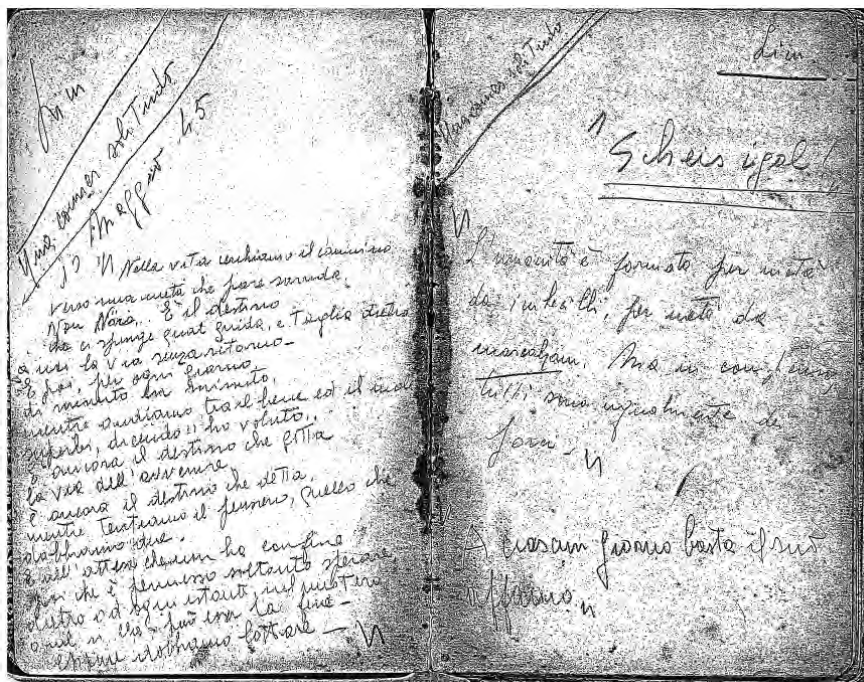 maggio 45
"Nella vita cerchiamo il cammino
verso una meta che pare sorrida.
Non Nora.. È il destino
che ci spinge qual guida, e taglia dietro
a noi la via senza ritorno-
E poi, per ogni giorno
di minuto in minuto,
mentre andiamo tra il bene ed il male
superbi, dicendo "ho voluto",
è ancora il destino che getta
la via dell'avvenire
è ancora il destino che detta,
mentre tentiamo il pensiero, quello che
dobbiamo dire.
E all'attesa che non ha confine
poi che è permesso soltanto sperare,
dietro ad ogni istante, nel mistero
può esser la fine-
dobbiamo lottare - "
solitudo
Lim
"Scheis igal!
"L'umanità è formata per metà
da imbecilli, per metà da
mascalzoni. Ma in
tutti sono ugualmente de
"A ciascun giorno basta il suo
affanno"